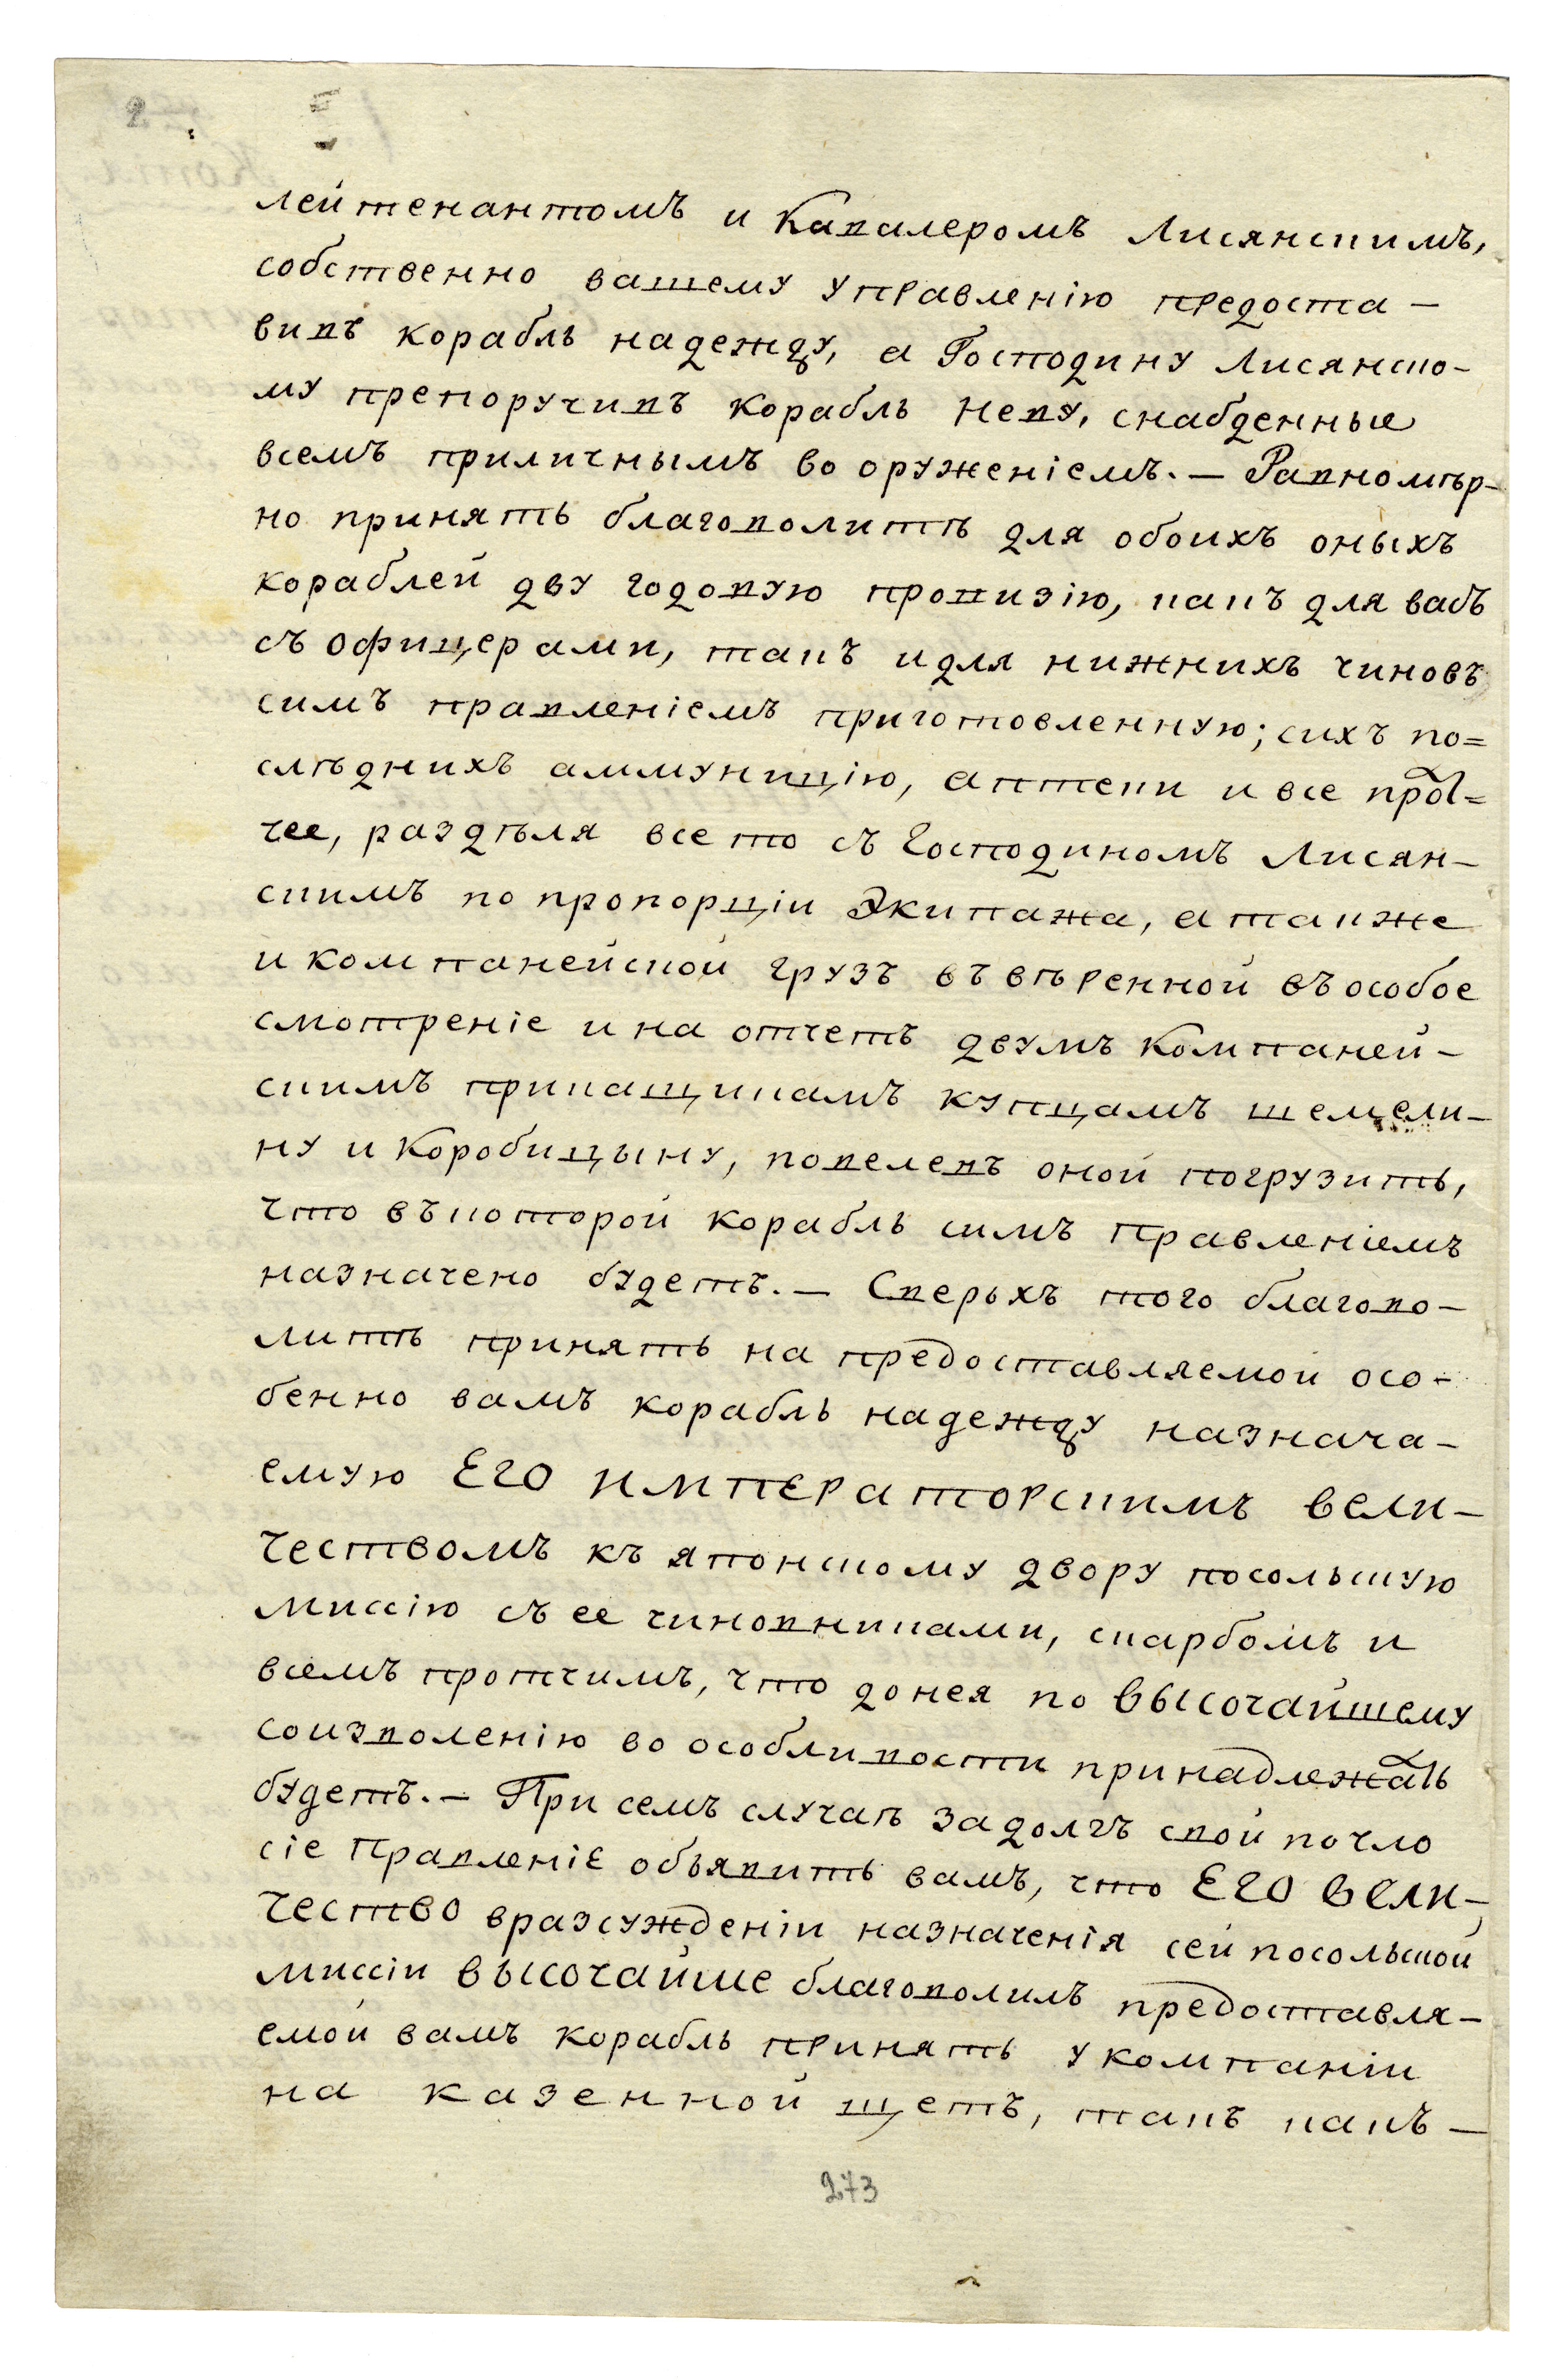 2
лейтенантомъ и Кавалеромъ Лисянскимъ,
собственно вашему управленію предоста-
вивъ корабль надежду, а Господину Лисянско-
му препоручивъ корабль неву, снабденные
всемъ приличнымъ во оруженіемъ. — Равномѣр-
но принять благоволитѣ для обоихъ оныхъ
кораблей дву годовую провизію, какъ для васъ
съ офицерами, такъ и для нижнихъ чиновъ
симъ правленіемъ приготовленную; сихъ по=
слѣднихъ аммуницію, аптеки и все прот=
чее, раздѣля все то съ Господиномъ Лисян-
скимъ по пропорціи Экипажа, а также
и компанейской грузъ въвѣренной въ особое
смотреніе и на отчетъ двумъ Компаней-
скимъ прикащикамъ купцамъ шемели-
ну и Коробицыну, повелевъ оной погрузить,
что въ которой корабль симъ Правленіемъ
назначено будетъ. — Сверьхъ того благово-
литѣ принять на предоставляемой осо-
бенно вамъ корабль надежду назнача-
емую ЕГО ИМПЕРАТОРСКИМЪ вели-
чествомъ къ японскому двору посольскую
миссію съ ее чиновниками, скарбомъ и
всемъ протчимъ, что до нея по Высочайшему
соизволенію во особливости принадлежать
будетъ. — При семъ случаѣ за долгъ свой почло
сіе Правленіе объявить вамъ, что ЕГО вели-
чество вразсужденіи назначенія сей посольской
миссіи Высочайше благоволилъ предоставля-
емой вамъ корабль принять у компаніи
на казенной щетъ, такъ какъ —
273